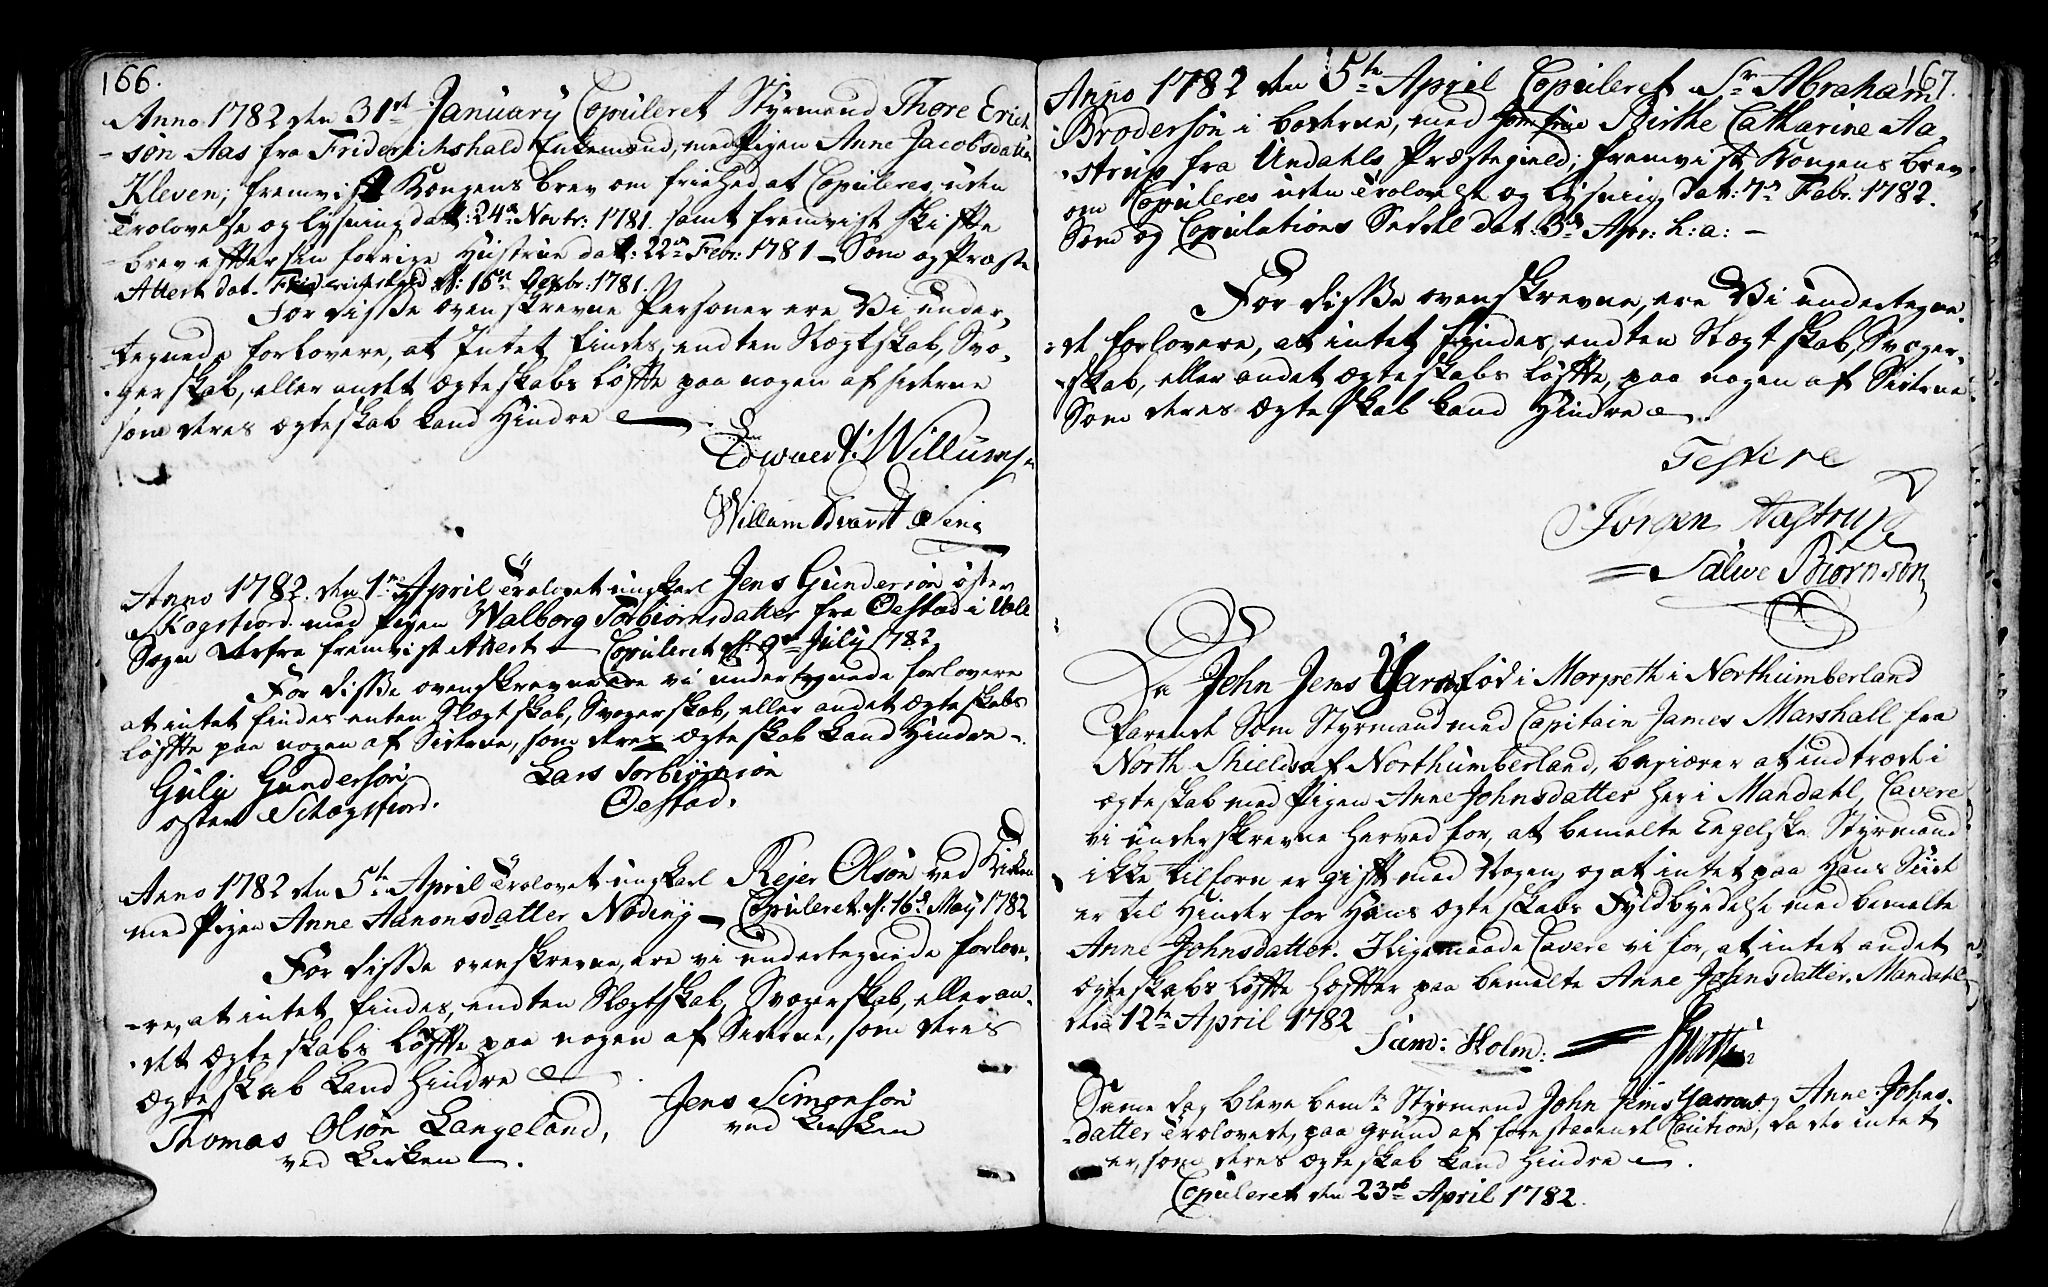 166.
Anno 1782 den 31te January Copuleret Styrmand Thore Erich
-sön Aas fra Friderichshald Enkemand, med Pigen Anne Jacobsdatter
Kleven; fremvist Kongens brev om friehed at Copuleres, uden
Trolovelse og lysning dat: 24de Novbr: 1781. samt fremvist Skifte
brev efter sin forrige Hustrue dat: 22de Febr: 1781 - Som og Præste
Attest dat. Friderichshald d: 16de 1781.
For disse ovenskrevne Personer ere Vi under-
tegnede forlovere, at Intet findes, endten Slægtskab, Svo-
gerskab, eller andet ægteskabs løfte paa nogen af siderne
som deres ægteskab kand Hindre
Edwaert: Willumsen
Willum Edvardt Sön
Anno 1782. den 1te April Trolovet ungkarl Jens Gundersön østen
Skogsfiord med Pigen Walborg Torbiörnsdatter fra Oestad i
Sogn derfra fremvist Attest - Copuleret d: 9de July 1782
For disse ovenskrevne ere vi undertegnede forlovere
at intet findes enten Slægtskab, Svogerskab, eller andet ægteskabs
løfte paa nogen af Siderne, som deres ægteskab kand Hindre -.
Gulu Gundersön Lars Torbiörnsön
østen Schogsfiord. Oestad.
Anno 1782 den 5te April Trolovet ungkarl Rejer Olsön ved Kirken
med Pigen Anne Aanonsdatter Nöding - Copuleret d: 16de May 1782
For disse ovenskrevne, ere vi undertegnede forlove-
-re, at intet findes, endten Slægtskab, Svogerskab, eller an-
-det ægteskabs løfte paa nogen af Siderne, som deres
ægteskab kand Hindre
Thomas Olsön Langeland, Jens Simonsön
ved Kirken. ved Kirken
167.
Anno 1782 den 5te April Copuleret Sr Abraham
Brodersön i boderne, med Jomfrue Birthe Catharine Aa-
-strup fra Undahls Præstegield; fremvist Kongens brev
om Copuleres uden Trolovelse og lysning dat: 7de Febr. 1782.
Som og Copulations Seddel dat: 3de Apr: h: a: -
For disse ovenskrevne, ere Vi undertegne-
-de forlovere, at intet findes endten Slægtskab, Svoger-
-skab, eller andet ægteskabs løfte, paa nogen af Siderne
Som deres ægteskab kand Hindre.
Testere
Jörgen Aastrup
Salwe Biörnsön
Da John Jens Yarrow föd i Morpeth i Northumberland
farende Som Styrmand med Capitain James Marshall fra
North Shields af Northumberland, begiærer at indtræde i
ægteskab med Pigen Anne Johnsdatter her i Mandahl, Cavere
vi underskrevne herved for, at bemelte Engelske Styrmand
ikke tilforn er gift med Nogen, og at intet paa Hans Siide
er til Hinder for Hans ægteskabs Fyldbyrdelse med bemelte
Anne Johnsdatter. Ligemaade Cavere vi for, at intet andet
ægteskabs løfte Hæfter paa bemelte Anne Johnsdatter. Mandahl
den 12te April 1782
Sam: Holm:
Same dag bleve bemte Styrmand John Jems Yarrow og Anne Johns-
-datter Trolovede, paa grund af forestaaende Caution, da der intet
er, som deres ægteskab kand Hindre.
Copuleret den 23de April 1782.